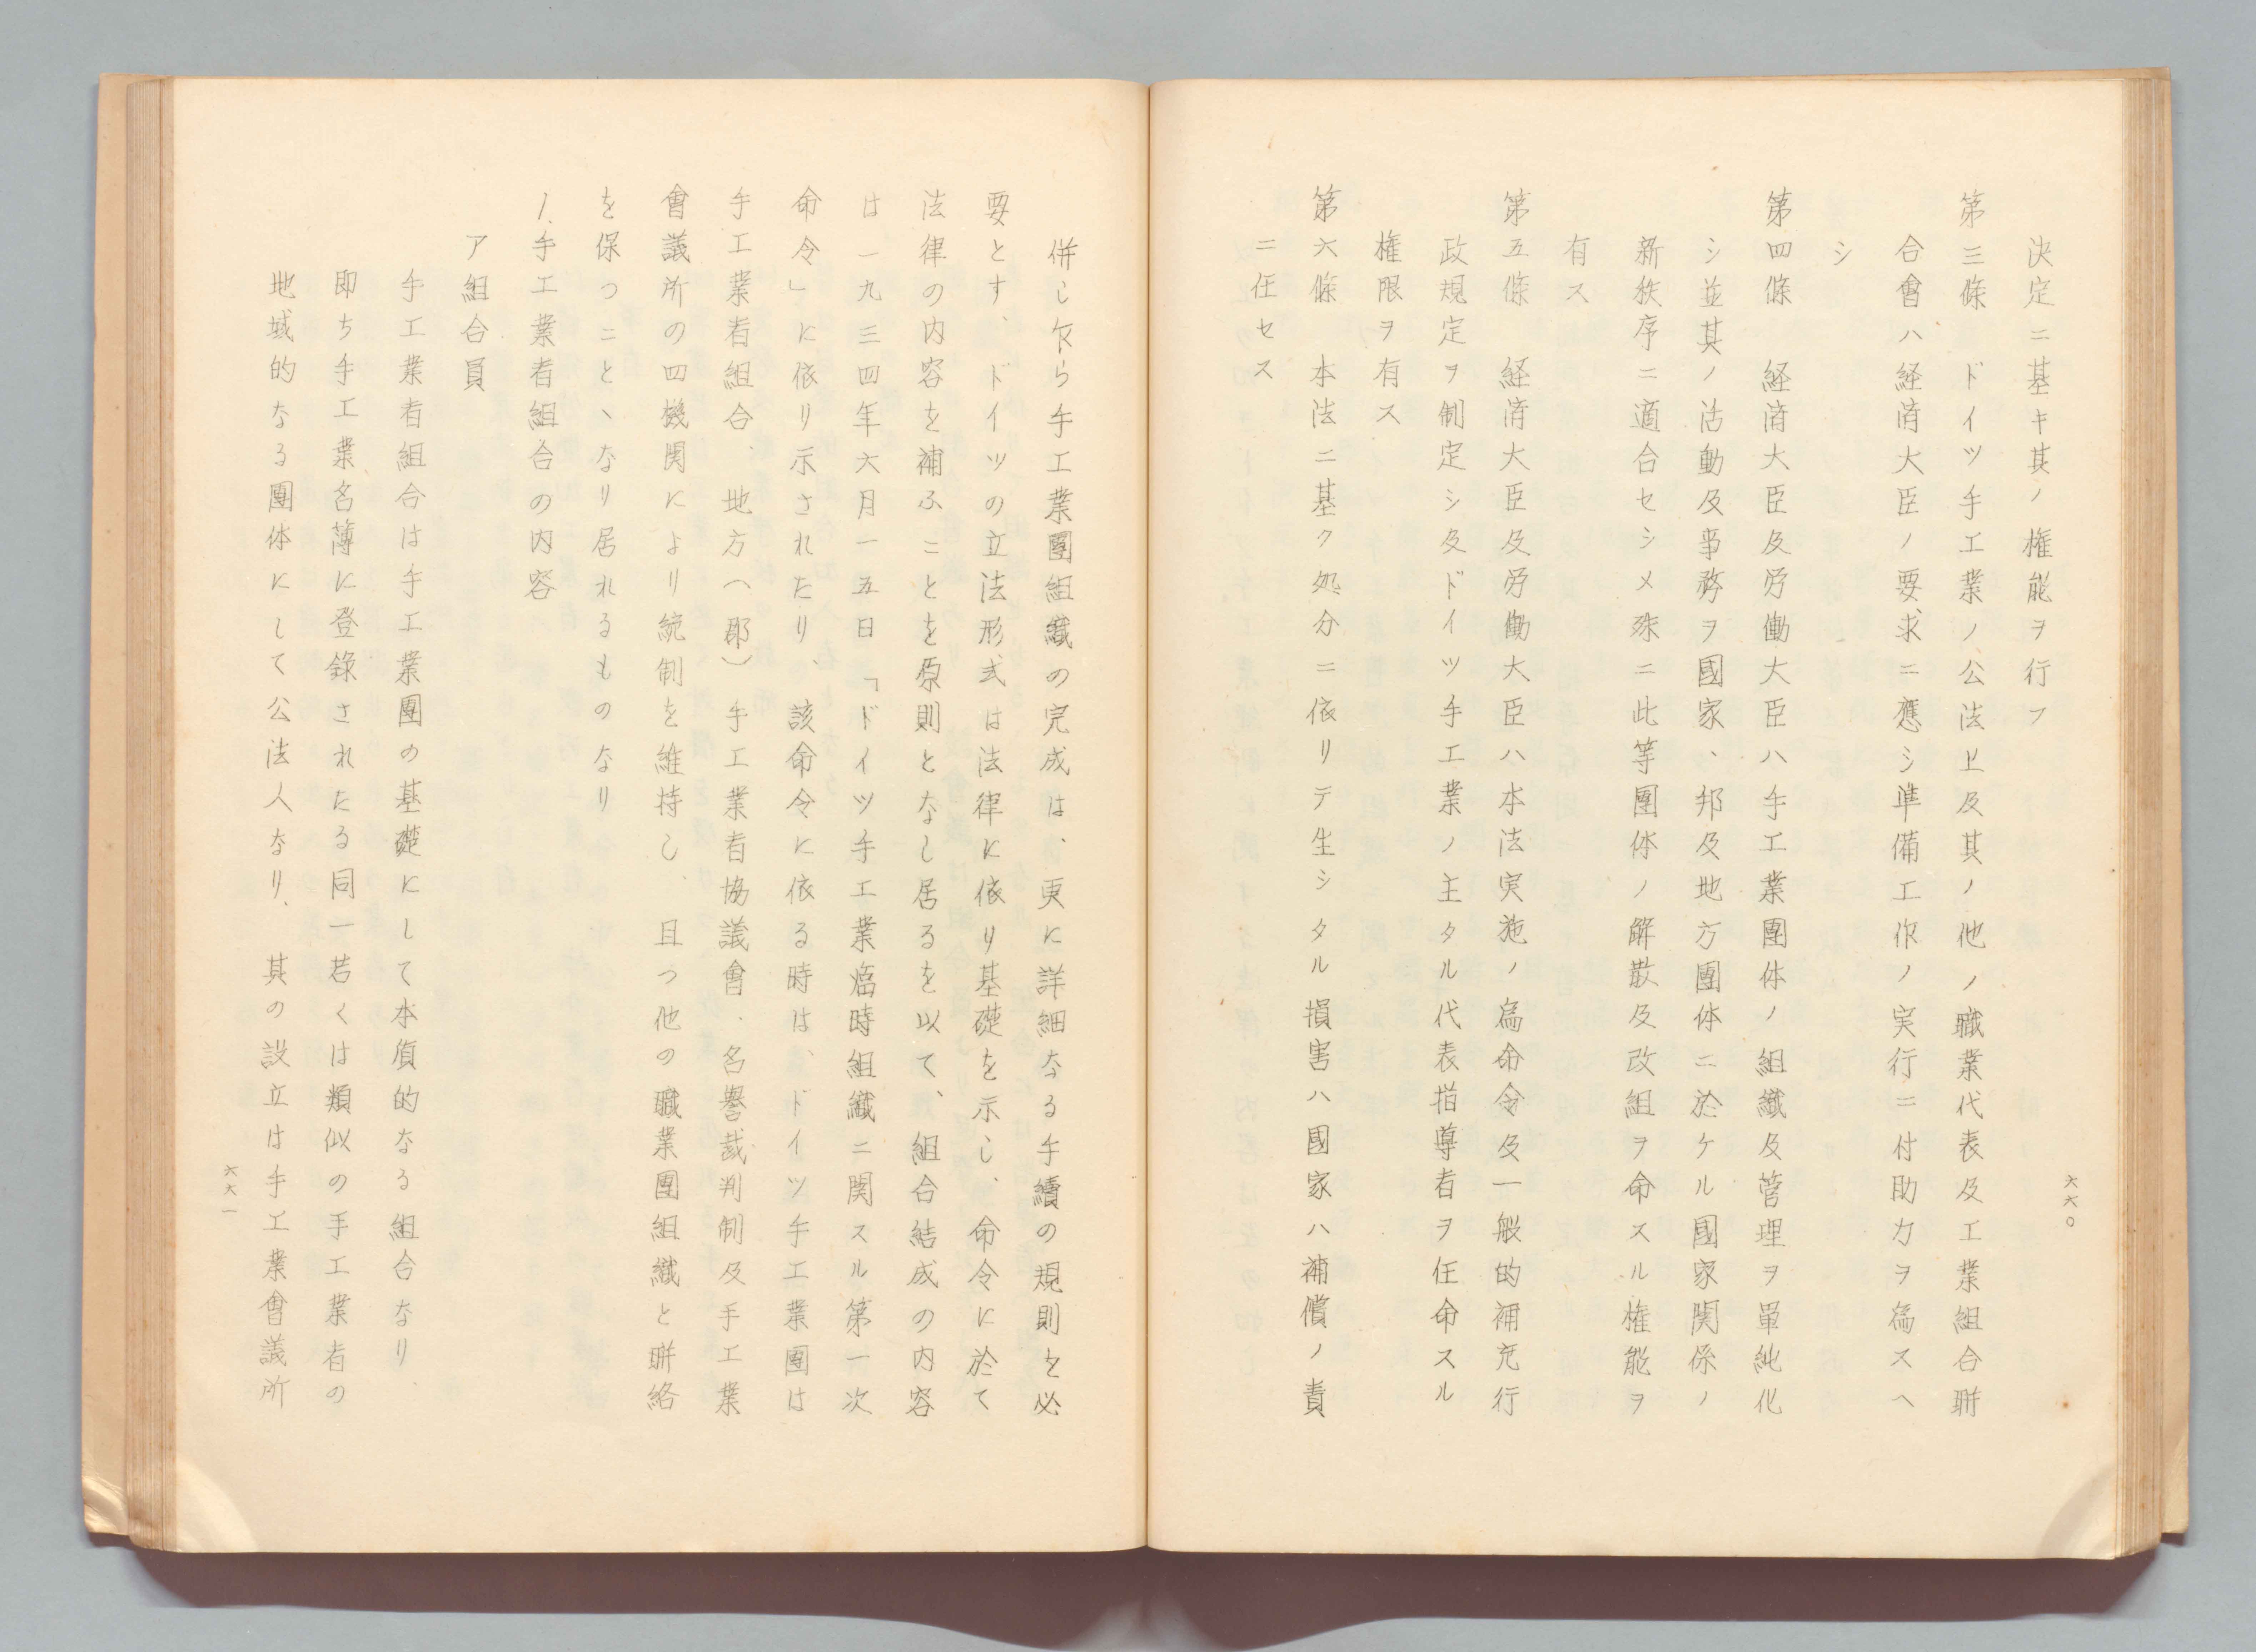 決定ニ基キ其ノ権能ヲ行フ
第三條　ドイツ手工業ノ公法上及其ノ他ノ職業代表及工業組合聯
合會ハ経済大臣ノ要求ニ應シ準備工作ノ実行ニ付助力ヲ為スヘ
シ
第四條　経済大臣及労働大臣ハ手工業團体ノ組織及管理ヲ單純化
シ並其ノ活動及事務ヲ國家、邦及地方團体ニ於ケル國家関係ノ
新秩序ニ適合セシメ殊ニ此等團体ノ解散及改組ヲ命スル権能ヲ
有ス
第五條　経済大臣及労働大臣ハ本法実施ノ為命令及一般的補充行
政規定ヲ制定シ及ドイツ手工業ノ主タル代表指導者ヲ任命スル
権限ヲ有ス
第六條　本法ニ基ク処分ニ依リテ生シタル損害ハ國家ハ補償ノ責
ニ任セス
六六〇
併し乍ら手工業團組織の完成は、更に詳細なる手續の規則を必
要とす、ドイツの立法形式は法律に依り基礎を示し、命令に於て
法律の内容を補ふことを原則となし居るを以て、組合結成の内容
は一九三四年六月一五日「ドイツ手工業臨時組織ニ関スル第一次
命令」に依り示されたり、該命令に依る時は、ドイツ手工業團は
手工業者組合、地方（郡）手工業者協議會、名譽裁判制及手工業
會議所の四機関により統制を維持し、且つ他の職業團組織と聯絡
を保つこと丶なり居れるものなり
1.手工業者組合の内容
ア組合員
手工業者組合は手工業團の基礎にして本質的なる組合なり、
即ち手工業名薄に登錄されたる同一若くは類似の手工業者の
地域的なる團体にして公法人なり、其の設立は手工業會議所
六六一